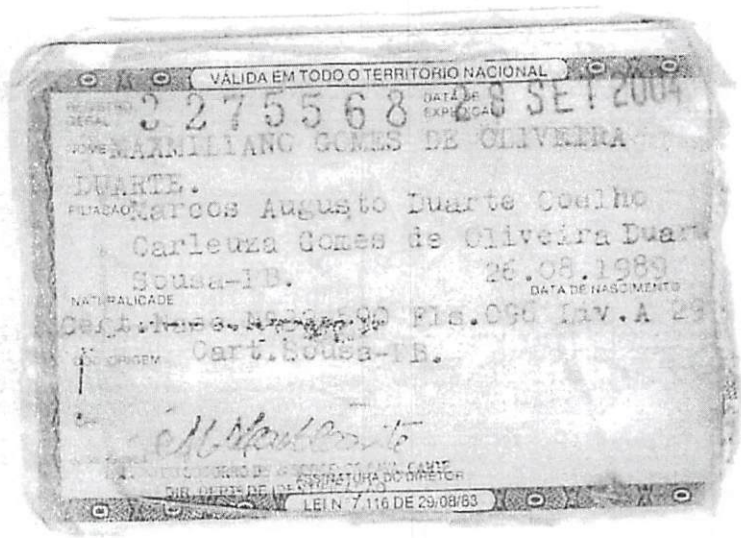 VÁLIDA EM TODO O TERRITORIO NACIONAL
REGISTRO GERAL 3275568 DATA DE EXPEDIÇÃO 28 SET 2004
NOME MAXMILIANO GOMES DE OLIVEIRA
DUARTE.
FILIAÇÃO Marcos Augusto Duarte Coelho
Carleuza Gomes de Oliveira Duarte
Sousa-PB. 26.08.1989
NATURALIDADE DATA DE NASCIMENTO
Cert.Nasc.Nº Fls.096 Liv.A 29
DOC ORIGEM Cart.Sousa-PB.
ASSINATURA DO DIRETOR
LEI Nº 7.116 DE 29/08/83